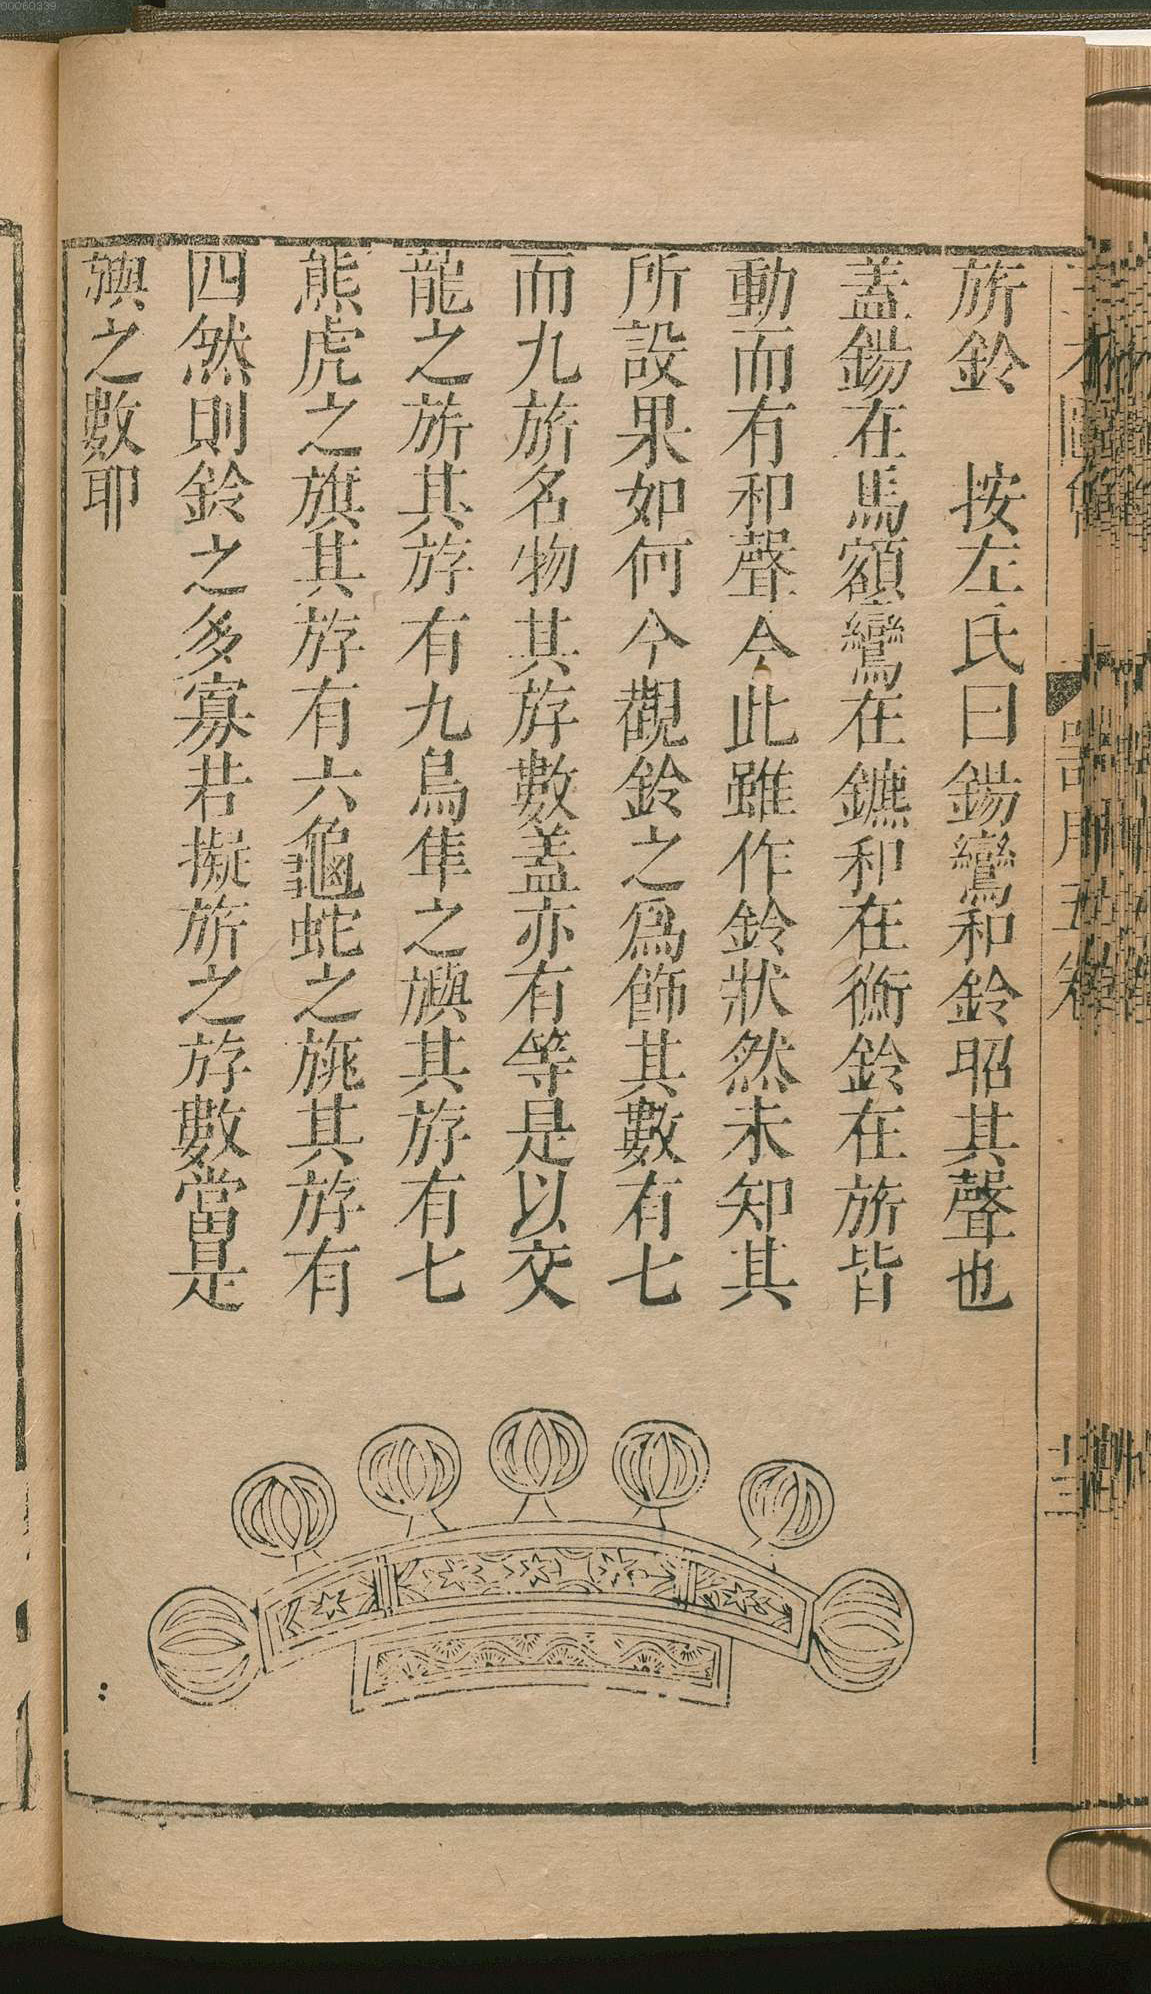 旂鈴　按左氏曰鍚鸞和鈴昭其聲也
蓋鍚在馬額鸞在鑣和在衡鈴在旂皆
動而有和聲今此雖作鈴狀然未知其
所設果如何今觀鈴之爲飾其數有七
而九旂名物其斿數蓋亦有等是以交
龍之旂其斿有九鳥隼之旟其斿有七
熊虎之旗其斿有六龜蛇之旐其斿有
四然則鈴之多寡若擬旂之斿數當是
旟之數耶
器用五卷
十三
00060339